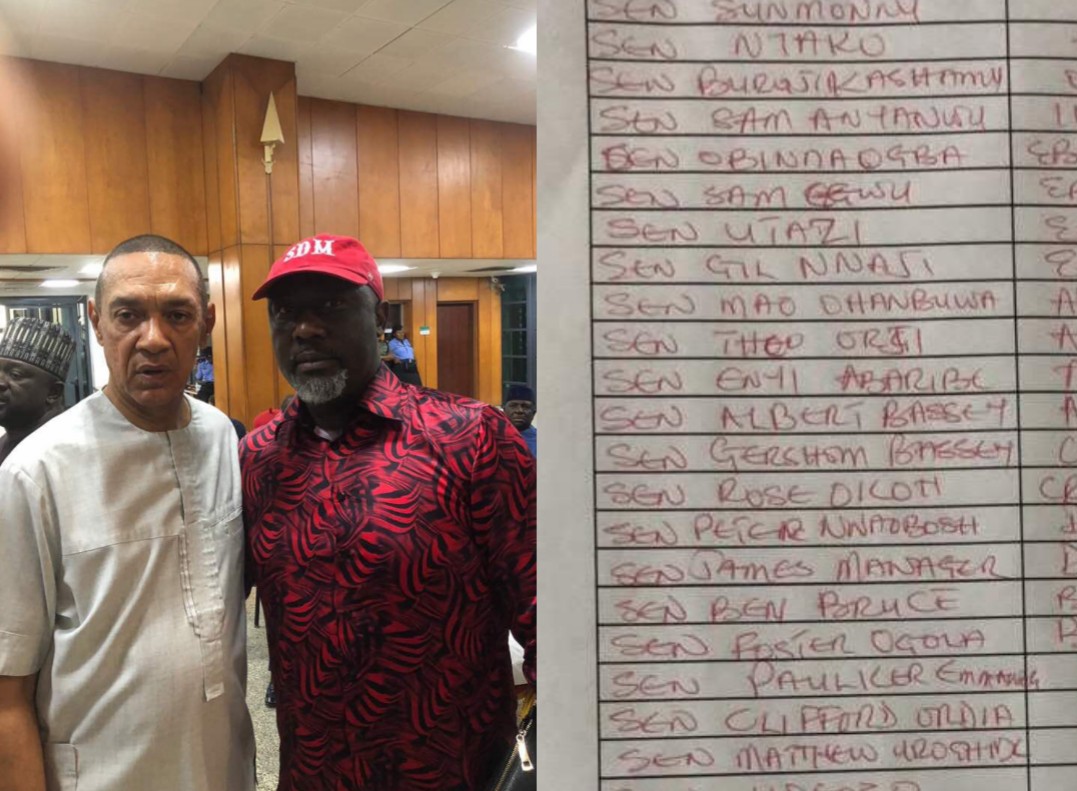 SDM
SEN SUNMONNU
SEN NTAKO
SEN BURUJIKASHAMU
SEN SAM ANYANWU
SEN OBINNA OGBA
SEN SAM EGWU
SEN UTAZI
SEN GIL NNAJI
SEN MAO OHANBUWA
SEN THEO ORJI
SEN ENYI ABARIBE
SEN ALBERT BASSEY
SEN GERSHOM BASSEY
SEN ROSE OKOH
SEN PETER NWAOBOSH
SEN JAMES MANAGER
SEN BEN BRUCE
SEN FOSTER OGOLA
SEN PAULKER
SEN CLIFFORD ORDIA
SEN MATTHEW